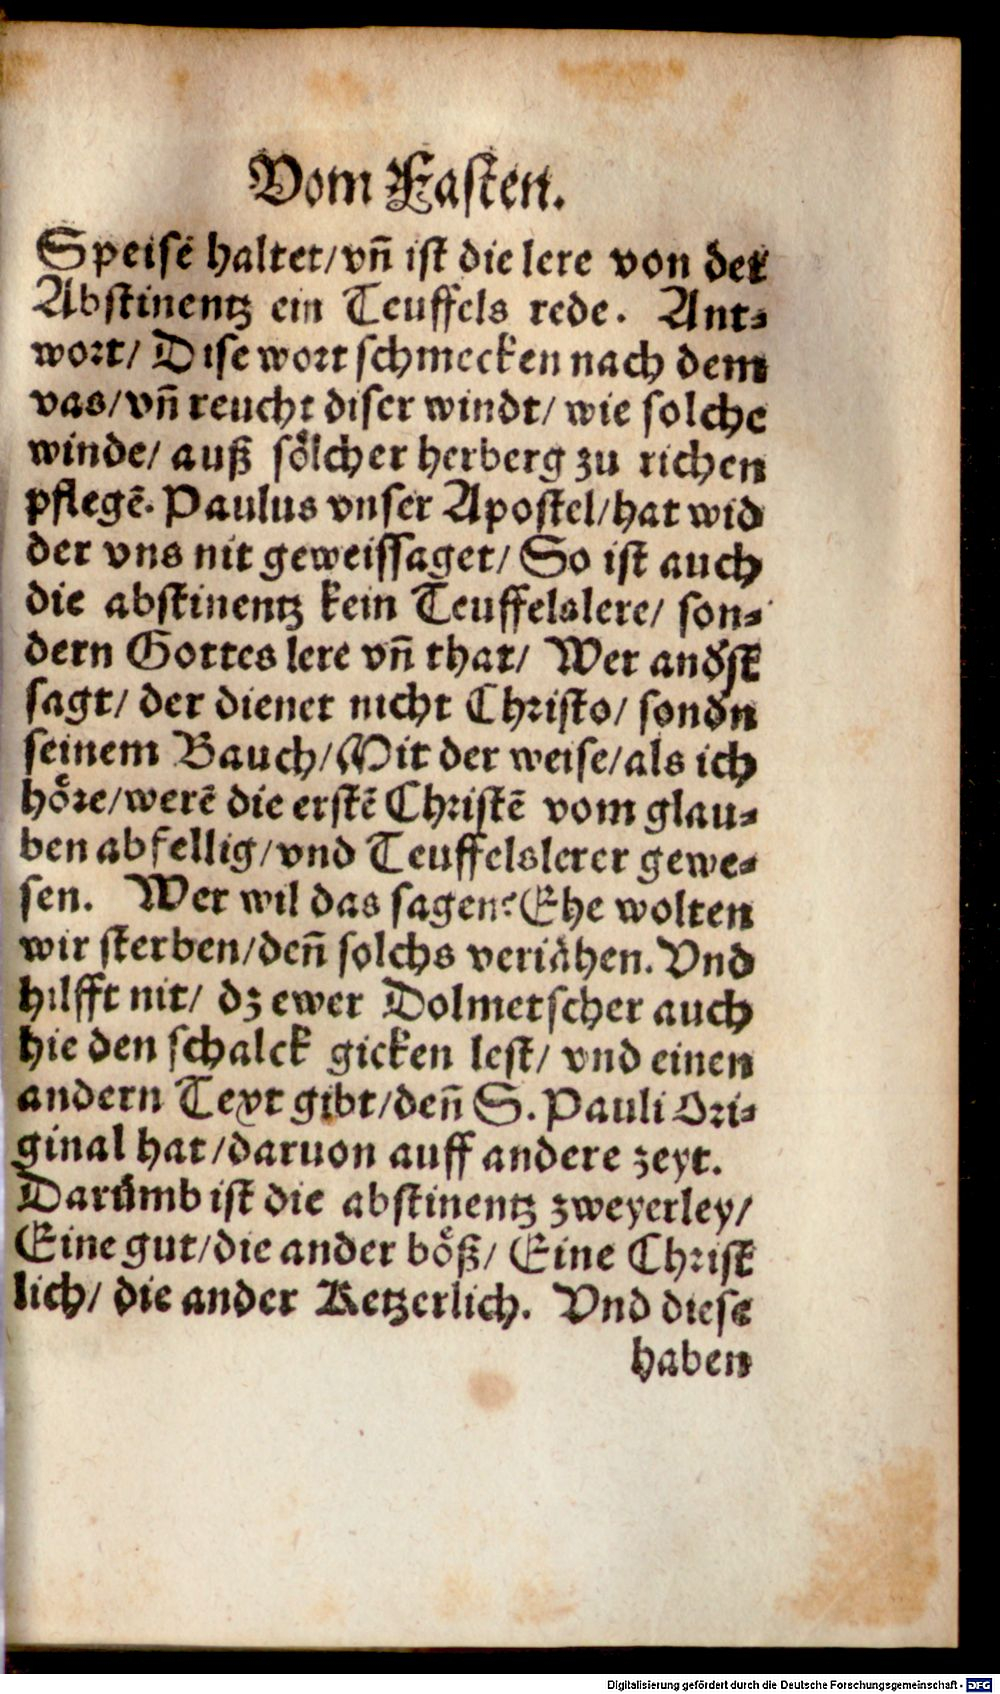 Vom Fasten.
Speisē haltet/vn̄ ist die lere von der
Abstinentz ein Teuffels rede. Ant-
wort/ Dise wort schmecken nach dem
vas/vn̄ reucht diser windt/ wie solche
winde/ auß soͤlcher herberg zu richen
pflegē. Paulus vnser Apostel/hat wid
der vns nit geweissaget/ So ist auch
die abstinentz kein Teuffelslere/ son-
dern Gottes lere vn̄ that/ Wer andst
sagt/ der dienet nicht Christo/ sondn
seinem Bauch/Mit der weise/als ich
hoͤre/werē die erstē Christē vom glau-
ben abfellig/vnd Teuffelslerer gewe-
sen. Wer wil das sagen? Ehe wolten
wir sterben/den̄ solchs veriaͤhen. Vnd
hilfft nit/ dz ewer Dolmetscher auch
hie den schalck gicken lest/ vnd einen
andern Text gibt/den̄ S. Pauli Ori-
ginal hat/daruon auff andere zeyt.
Darůmb ist die abstinentz zweyerley/
Eine gut/die ander boͤß/ Eine Christ
lich/ die ander Ketzerlich. Vnd diese
haben
Digitalisierung gefördert durch die Deutsche Forschungsgemeinschaft - DFG